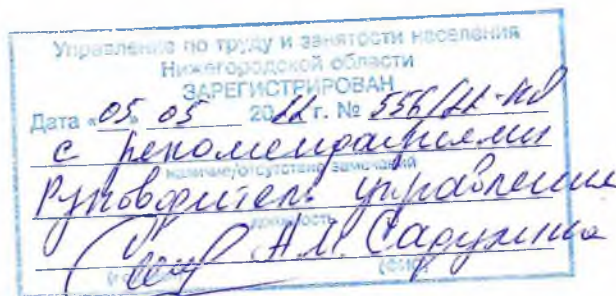 Управление по труду и занятости населения
Нижегородской области
ЗАРЕГИСТРИРОВАН
Дата «05» 05 2022 г. №
с рекомендациями
наличие/отсутствие замечаний
Руководитель управления
должность
(ФИО)